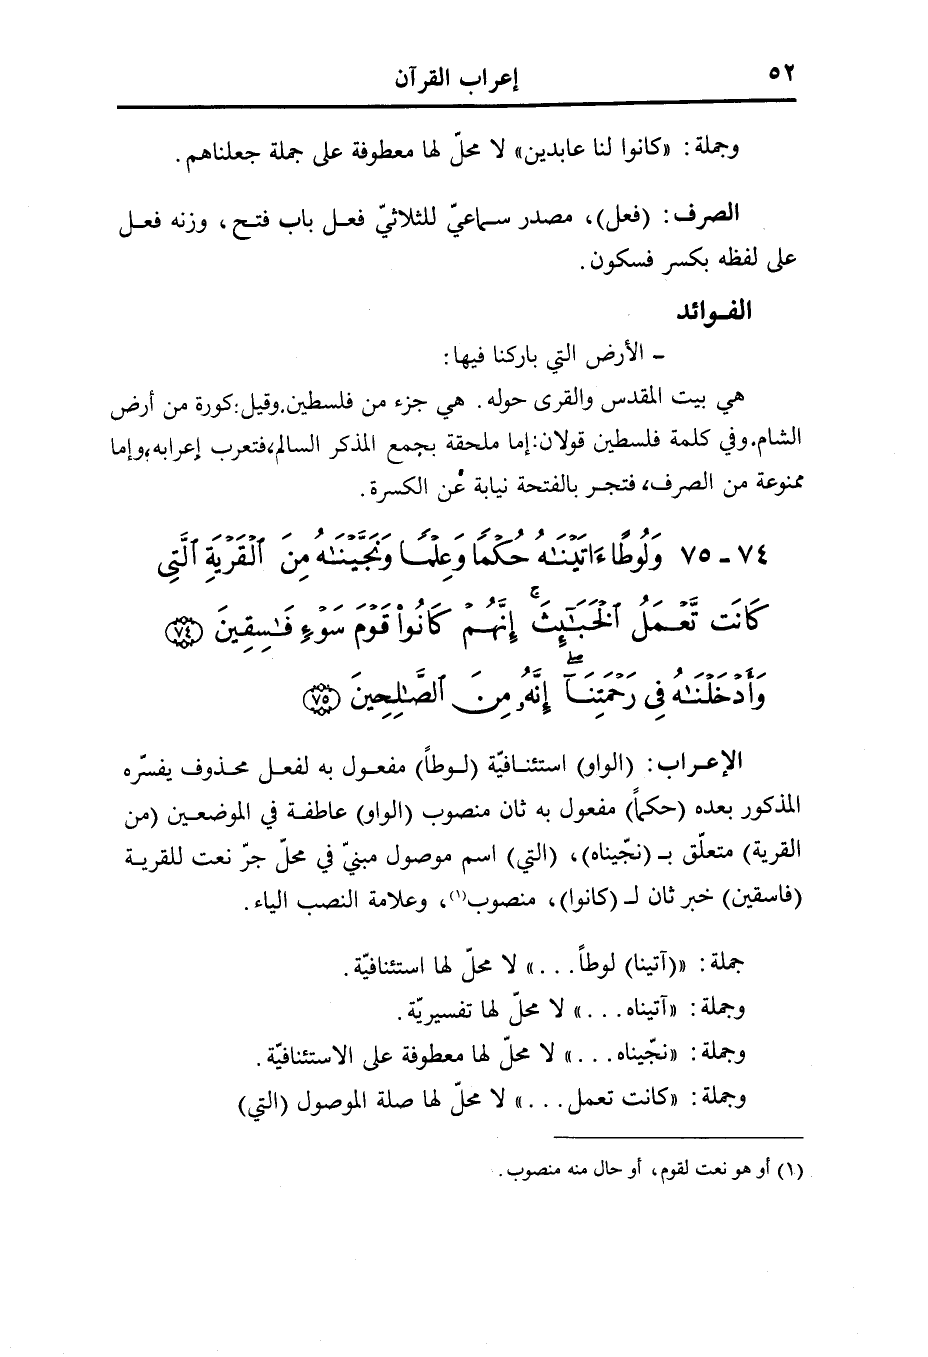 ٥٢
إعراب القرآن
وجملة: «كانوا لنا عابدين» لا محلّ لها معطوفة على جملة جعلناهم.
الصرف: (فعل)، مصدر سماعيّ للثلاثيّ فعل باب فتح، وزنه فعل
على لفظه بكسر فسكون.
الفوائد
- الأرض التي باركنا فيها:
هي بيت المقدس والقرى حوله. هي جزء من فلسطين.وقيل:كورة من أرض
الشام.وفي كلمة فلسطين قولان:إما ملحقة بجمع المذكر السالم،فتعرب إعرابه،وإما
ممنوعة من الصرف، فتجر بالفتحة نيابة عن الكسرة.
٧٤ - ٧٥ وَلُوطًا ءَاتَيْنَٰهُ حُكْمًا وَعِلْمًا وَنَجَّيْنَٰهُ مِنَ ٱلْقَرْيَةِ ٱلَّتِى
كَانَت تَّعْمَلُ ٱلْخَبَٰٓئِثَ ۚ إِنَّهُمْ كَانُوا۟ قَوْمَ سَوْءٍ فَٰسِقِينَ ﴿٧٤﴾
وَأَدْخَلْنَٰهُ فِى رَحْمَتِنَآ ۖ إِنَّهُۥ مِنَ ٱلصَّٰلِحِينَ ﴿٧٥﴾
الإعراب: (الواو) استئنافيّة (لوطاً) مفعول به لفعل محذوف يفسّره
المذكور بعده (حكماً) مفعول به ثان منصوب (الواو) عاطفة في الموضعين (من
القرية) متعلّق بـ (نجّيناه)، (التي) اسم موصول مبنيّ في محلّ جرّ نعت للقرية
(فاسقين) خبر ثان لـ (كانوا)، منصوب(١)، وعلامة النصب الياء.
جملة: «(آتينا) لوطاً...» لا محلّ لها استئنافيّة.
وجملة: «آتيناه...» لا محلّ لها تفسيريّة.
وجملة: «نجّيناه...» لا محلّ لها معطوفة على الاستئنافيّة.
وجملة: «كانت تعمل...» لا محلّ لها صلة الموصول (التي)
(١) أو هو نعت لقوم، أو حال منه منصوب.